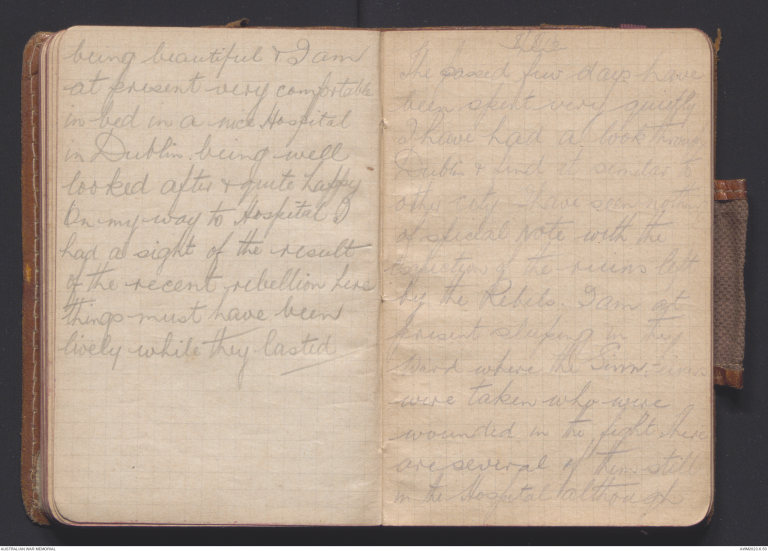 being beautiful & I am
at present very comfortable
in bed in a nice Hospital
in Dublin. being well
looked after & quite happy
On my way to Hospital I
had a sight of the result
of the recent rebellion here
things must have been
lively while they lasted
The passed few days have
been spent very quietly
I have had a look through
Dublin & find it similar to
other city have seen nothing
of special note with the
exception of the ruins left
by the Rebels. I am at
present sleeping in the
Ward where the Sinn
were taken who were
wounded in the fight there
are several of them still
in the Hospital although
AUSTRALIAN WAR MEMORIAL